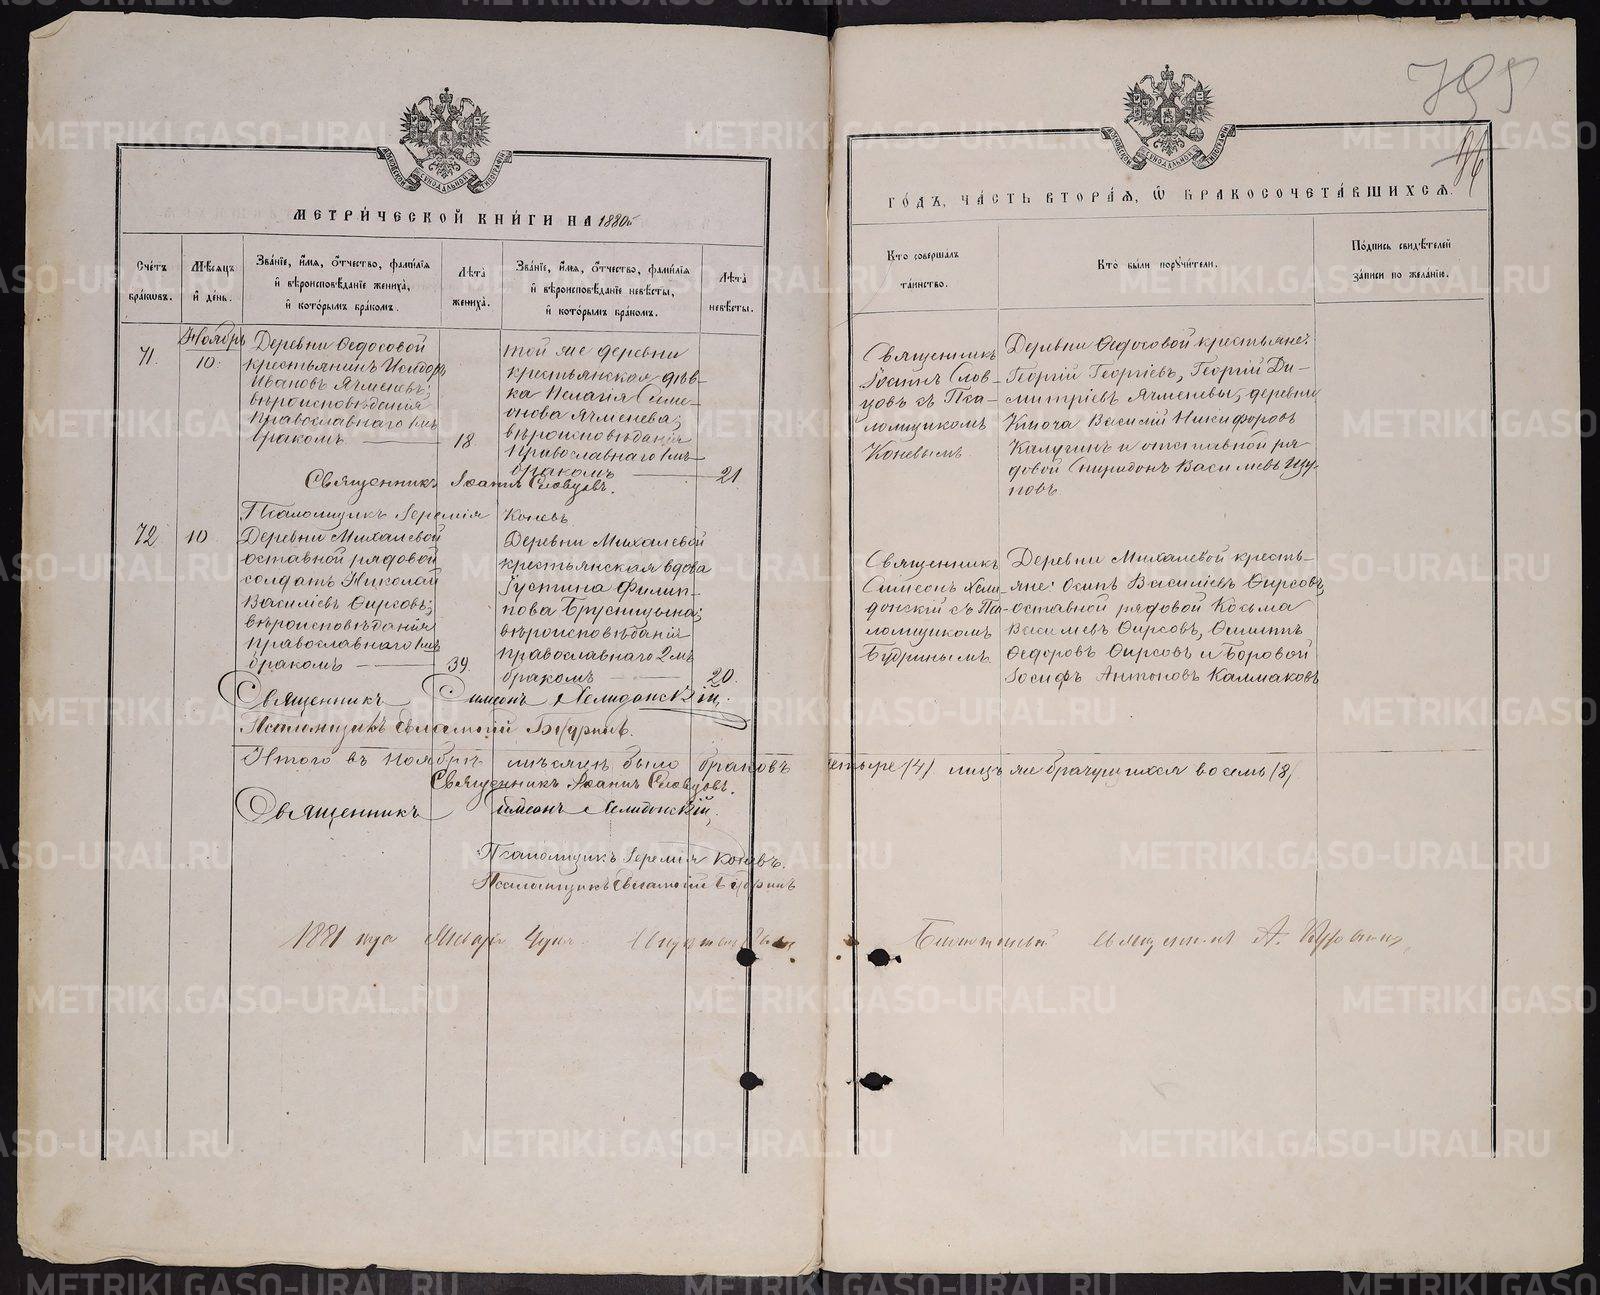 795
96
МОСКОВСКОЙ СѴНОДАЛЬНОЙ ТИПОГРАФІИ
МОСКОВСКОЙ СѴНОДАЛЬНОЙ ТИПОГРАФІИ
МЕТРИ́ЧЕСКОЙ КНИ́ГИ НА 1880й
ГО́ДЪ, ЧА́СТЬ ВТОРА́Я, Ѿ БРАКОСОЧЕТА́ВШИХСЯ.
Сче́тъ бра́ковъ.
Мѣ́сяцъ и҆ де́нь.
Зва́нїе, и҆́мя, ѻ҆́тчество, фами́лїя
и҆ вѣроисповѣ́данїе жениха̀,
и҆ кото́рымъ бра́комъ.
Лѣ́та жениха̀.
Зва́нїе, и҆́мя, ѻ҆́тчество, фами́лїя
и҆ вѣроисповѣ́данїе невѣ́сты,
и҆ кото́рымъ бра́комъ.
Лѣ́та невѣ́сты.
Кто̀ соверша́лъ
та́инство.
Кто̀ бы́ли поручи́тели.
По́дпись свидѣ́телей
за́писи по жела́нїю.
71.
Ноябрь
10.
Деревни Ѳедосовой
крестьянинъ Исидоръ
Ивановъ Ячменевъ;
вѣроисповѣданія
православнаго 1мъ
бракомъ
18
той же деревни
крестьянская дѣв-
ка Пелагія Симе-
онова Ячменева;
вѣроисповѣданія
православнаго 1мъ
бракомъ
21
Священникъ
Іоаннъ Слов-
цовъ съ Пса-
ломщикомъ
Коневымъ
Деревни Ѳедосовой крестьяне:
Георгій Георгіевъ, Георгій Ди-
митріевъ Ячменевы, деревни
Ключа Василій Никифоровъ
Калугинъ и отставной ря-
довой Спиридонъ Васильевъ Щу-
повъ
Священникъ Іоаннъ Словцовъ.
Псаломщикъ Іеремія Коневъ
72
10
Деревни Михалевой
оставной рядовой
солдатъ Николай
Василіевъ Ѳирсовъ;
вѣроисповѣданія
православнаго 1мъ
бракомъ
39.
Деревни Михалевой
крестьянская вдова
Густина Филип-
пова Брусницына;
вѣроисповѣданія
православнаго 2мъ
бракомъ
20.
Священникъ
Симеонъ Хели-
донскій съ Пса-
ломщикомъ
Будринымъ
Деревни Михалевой кресть-
яне: Осипъ Василіевъ Ѳирсовъ,
оставной рядовой Косьма
Васильевъ Ѳирсовъ,
Ѳедоровъ Ѳирсовъ и Боровой
Іосифъ Антоновъ Калмаковъ
Священникъ Симеонъ Хелидонскій.
Псаломщикъ Будринъ.
Итого въ ноябрѣ мѣсяцѣ было браковъ четыре (4) лицъ же брачущихся восемь (8)
Священникъ Іоаннъ Словцовъ.
Священникъ Симеонъ Хелидонскій.
Псаломщикъ Іеремія Коневъ.
Псаломщикъ Будринъ
1881 года Января 4 дня
священникъ А.
METRIKI.GASO-URAL.RU